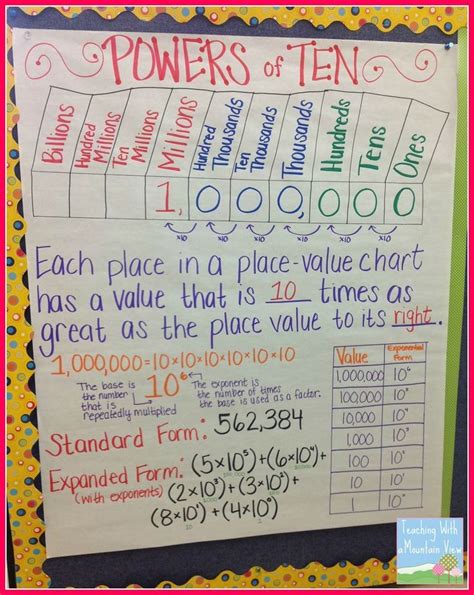 POWERS of TEN
Billions
Hundred Millions
Ten Millions
Millions
Hundred Thousands
Ten Thousands
Thousands
Hundreds
Tens
Ones
1,000,000
x10 x10 x10 x10 x10 x10
Each place in a place-value chart
has a value that is 10 times as
great as the place value to its right.
1,000,000=10×10×10×10×10×10
10⁶
The base is
the number
that is
repeatedly multiplied
The exponent is
the number of times
the base is used as a factor.
Value Exponential Form
1,000,000 10⁶
100,000 10⁵
10,000 10⁴
1,000 10³
100 10²
10 10¹
1 10⁰
Standard Form: 562,384
Expanded Form:
(with exponents)
(5×10⁵)+(6×10⁴)+
(2×10³)+(3×10²)+
(8×10¹)+(4×10⁰)
Teaching With
a Mountain View